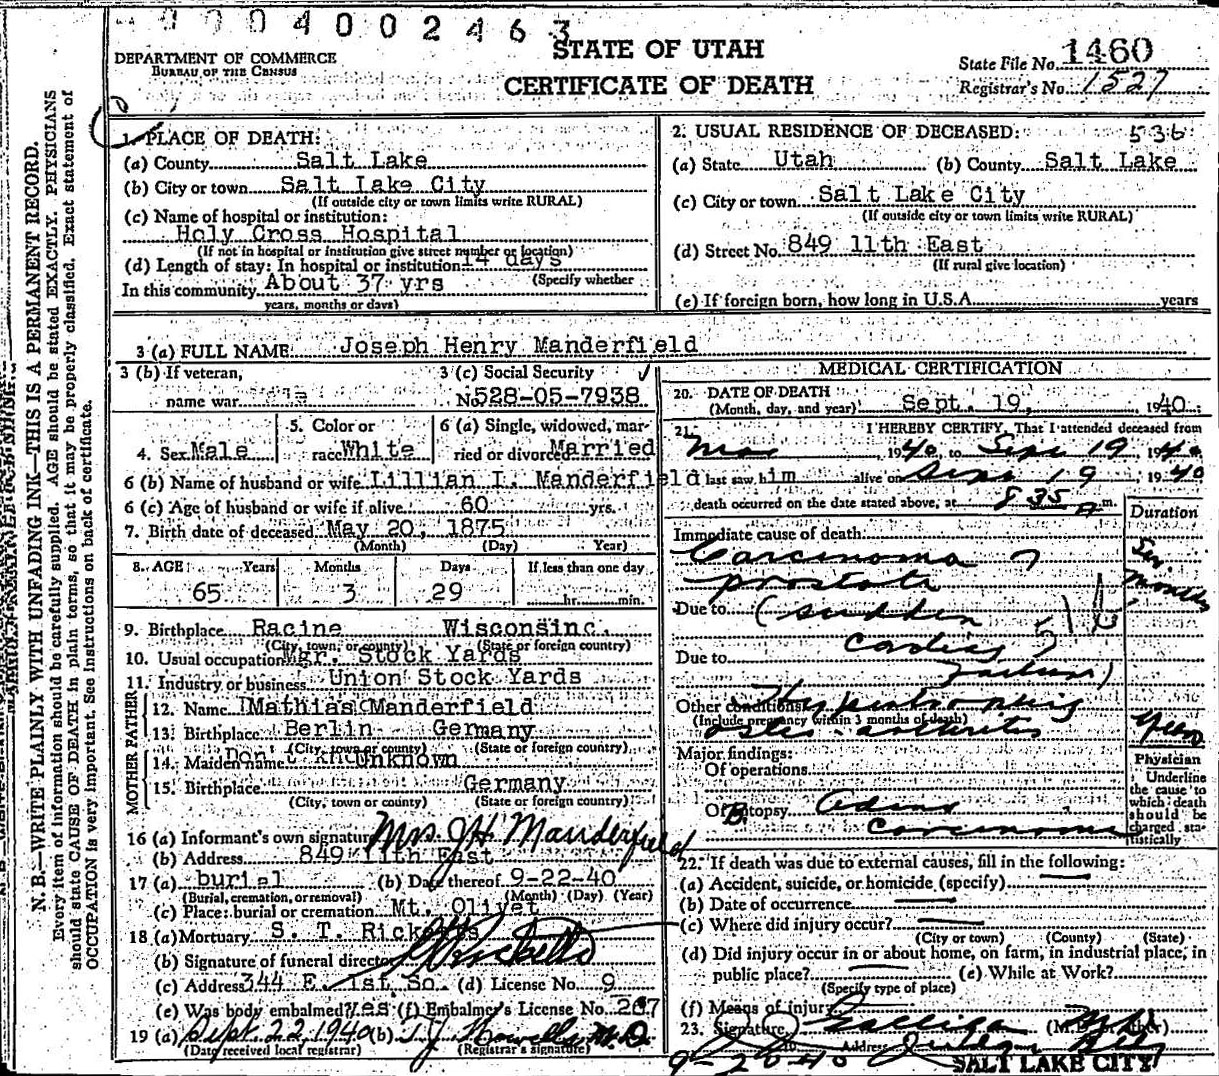 0004002463
STATE OF UTAH
CERTIFICATE OF DEATH
DEPARTMENT OF COMMERCE
BUREAU OF THE CENSUS
State File No. 1460
Registrar's No. 1527
N. B.—WRITE PLAINLY WITH UNFADING INK—THIS IS A PERMANENT RECORD.
Every item of information should be carefully supplied. AGE should be stated EXACTLY. PHYSICIANS
should state CAUSE OF DEATH in plain terms, so that it may be properly classified. Exact statement of
OCCUPATION is very important. See instructions on back of certificate.
1. PLACE OF DEATH:
(a) County Salt Lake
(b) City or town Salt Lake City
(If outside city or town limits write RURAL)
(c) Name of hospital or institution:
Holy Cross Hospital
(If not in hospital or institution give street number or location)
(d) Length of stay: In hospital or institution 14 days
(Specify whether
In this community About 37 yrs
years, months or days)
2. USUAL RESIDENCE OF DECEASED: 536
(a) State Utah (b) County Salt Lake
(c) City or town Salt Lake City
(If outside city or town limits write RURAL)
(d) Street No. 849 11th East
(If rural give location)
(e) If foreign born, how long in U.S.A. years
3 (a) FULL NAME Joseph Henry Manderfield
3 (b) If veteran,
name war
3 (c) Social Security
No. 528-05-7938
4. Sex Male
5. Color or
race White
6 (a) Single, widowed, mar-
ried or divorced Married
6 (b) Name of husband or wife Lillian I. Manderfield
6 (c) Age of husband or wife if alive 60 yrs.
7. Birth date of deceased May 20, 1875
(Month) (Day) Year)
8. AGE Years Months Days If less than one day
65 3 29 hr. min.
9. Birthplace Racine Wisconsinc.
(City, town, or county) (State or foreign country)
10. Usual occupation Mgr. Stock Yards
11. Industry or business Union Stock Yards
FATHER
12. Name Mathias Manderfield
13. Birthplace Berlin Germany
(City, town or county) (State or foreign country)
MOTHER
14. Maiden name Don't Unknown
15. Birthplace Germany
(City, town or county) (State or foreign country)
16 (a) Informant's own signature Mrs. J H Manderfield
(b) Address 849 11th East
17 (a) burial (b) Date thereof 9-22-40
(Burial, cremation, or removal) (Month) (Day) (Year)
(c) Place: burial or cremation Mt. Olivet
18 (a) Mortuary S. T. Ricketts
(b) Signature of funeral director
(c) Address 344 E. 1st. So. (d) License No. 9
(e) Was body embalmed? Yes (f) Embalmer's License No. 267
19 (a) Sept. 22, 1940 (b) M.D.
(Date received local registrar) (Registrar's signature)
MEDICAL CERTIFICATION
20. DATE OF DEATH
(Month, day, and year) Sept. 19, 1940.
21. I HEREBY CERTIFY, That I attended deceased from
1940, to Sept 19, 1940
I last saw him alive on Sept 19 1940
death occurred on the date stated above, at 8 35 m.
Duration
Immediate cause of death
Carcinoma
prostate
months
Due to (sudden
Due to cardiac
failure)
Other conditions Hypertrophic
(Include pregnancy within 3 months of death)
osteo-arthritis
Major findings:
Of operations
Of autopsy Adeno
carcinoma
Physician
Underline
the cause to
which death
should be
charged sta-
tistically
22. If death was due to external causes, fill in the following:
(a) Accident, suicide, or homicide (specify)
(b) Date of occurrence
(c) Where did injury occur?
(City or town) (County) (State)
(d) Did injury occur in or about home, on farm, in industrial place, in
public place? (e) While at Work?
(Specify type of place)
(f) Means of injury
23. Signature Galligan
Address
9-20-40
SALT LAKE CITY